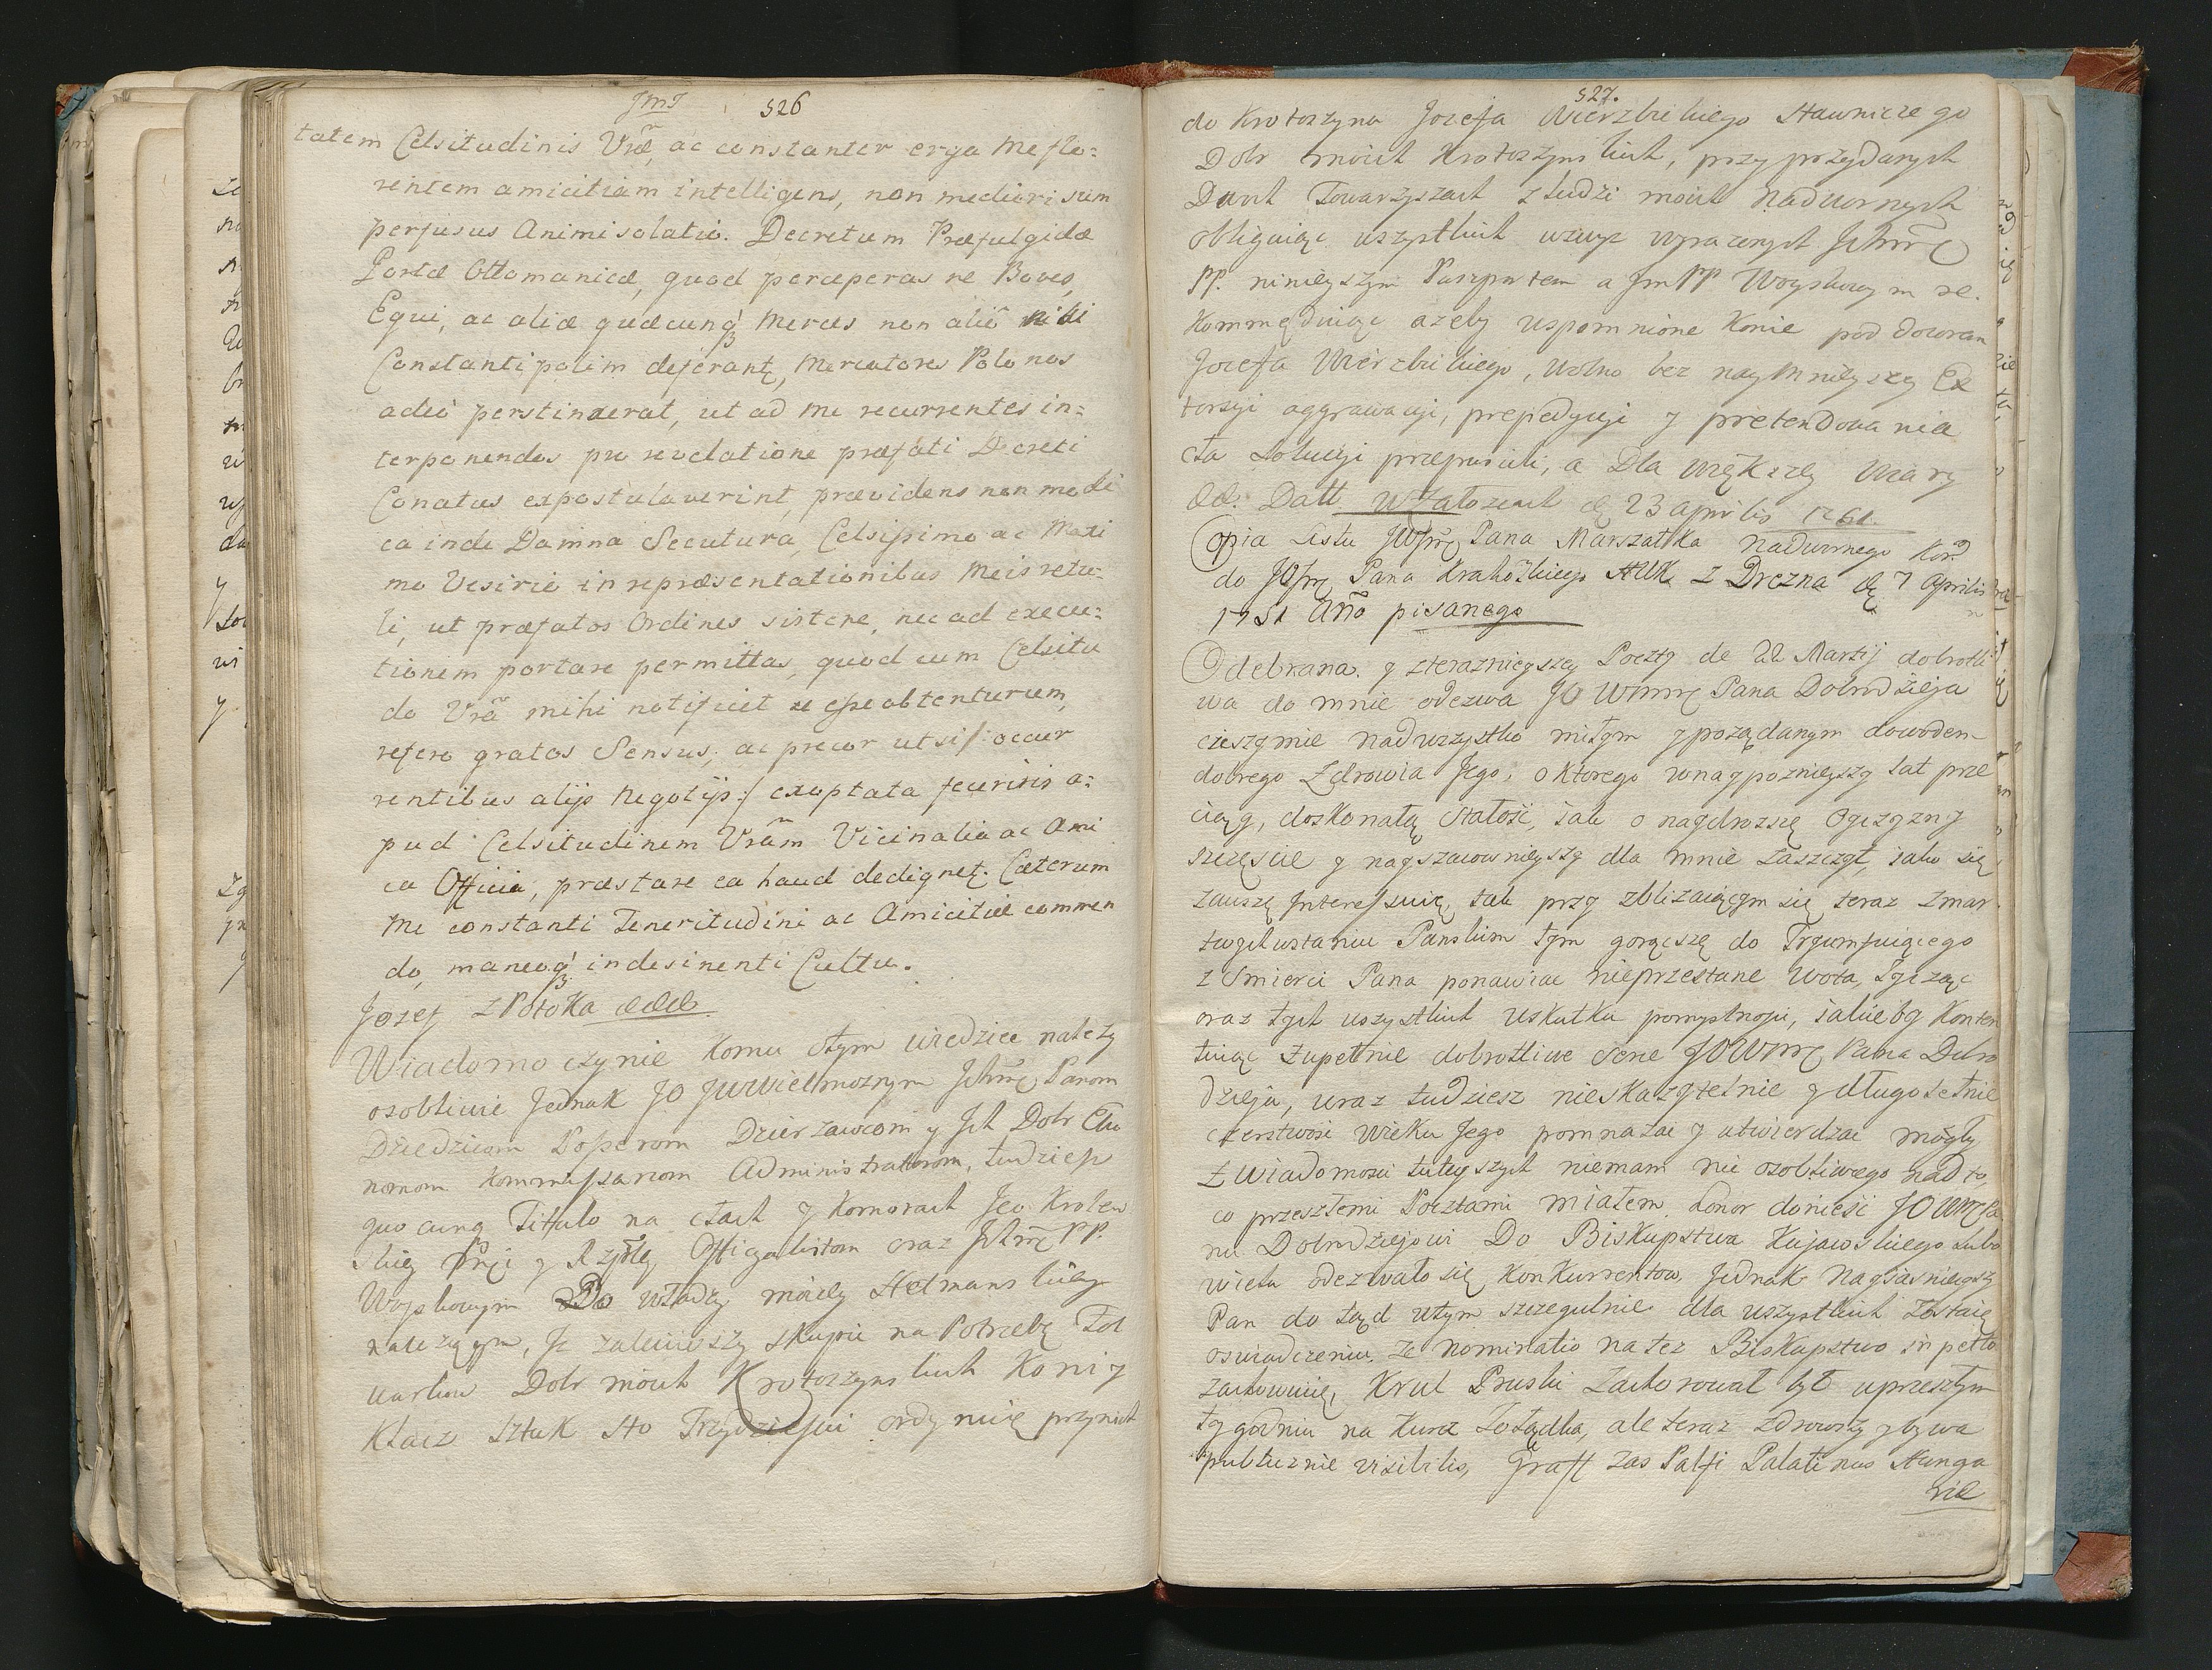 JmJ 526
tatem Celsitudinis Vræ, ac constanter erga me flo:
rentem amicitiam intelligens, non mediocri sum
perfusus Animi solatio. Decretum Præfulgidæ
Portæ Ottomanicæ, quod perceperas ne Boves,
Equi, ac aliæ quæcunq́ Merces non aliò nisi
Constantipolim deferant, Mercatores Polonos
adeò perstinxerat, ut ad me recurrentes in:
terponendos pro revelatione præfati Decreti
Conatus expostulaverint, prævidens non modi
ca inde Damna Secutura, Celsissimo ac Maxi
mo Vesirio in repræsentationibus Meis retu:
li, ut præfatos Ordines sistere, nec ad execu:
tionem portare permittas, quod cum Celsitu
do Vrã mihi notificet se esse obtenturum,
refero gratos Sensus, ac precor ut si /: occur
rentibus alijs Negotijs :/ exoptata fecerisis a:
pud Celsitudinem Vrãm Vicinalia ac Ami
ca Officia, præstare ea haud dedignet. Cæterum
Me constanti Teneritudini ac Amicitiæ commen
do, maneoq́ indesinenti Cultu.
Jozef z Potoka
Wiadomo czynie komu otym wiedziec nalezy
osobliwie Jednak JO JWWielmoznym Jchmę Panom
Dziedzicom Possesorom Dzierzawcom y Jch Dobr Eko
nomom Kommissarzom Administratorom, tudziesz
quo cunq Titulo na cłach y Komorach Jeo Krolew
skiey Mći y Rzptey, Officyalistom oraz Jchmę PP.
Woyskowym Do władzy moiey Hetmanskiey
nalezącym, Jz zaleciwszy skupic na Potrzebę Fol
warkow Dobr moich Krotoszynskich Koni y
Klacz Sztuk Sto Trzydziesci ordynuię przynich
527.
do Krotoszyna Jozefa Wierzbickiego Stawniczego
Dobr moich Krotoszynskich, przy przydanych
Dwoch Towarzyszach z ludzi moich Nadwornych
Obliguiąc wszystkich wzwyz wyrazonych Jchmę
PP. ninieyszym Paszportem a Jm PP Woyskowym re.
kommęduiąc azeby wspomnione Konie pod dozorem
Jozefa Wierzbickiego, wolno bez naymnieyszey Ex
torsyi aggrawacyi, prepedycyi y pretendowania
cła solucyi przepuscili, a Dla większey wiary
Datt w Załozcach d 23 Aprilis 1761.
Copia Listu JWJmę Pana Marszałka Nadwornego Kor
do JOJmę Pana Krakowskiego HWK z Drezna d 7 Aprilis
1751 Año pisanego
Odebrana y zterazniegszey Poczty de 22 Martij dobrotli
wa do mnie odezwa JO WMmę Pana Dobrodzieja
cieszy mie nadwszystko miłym y pożądanym dowodem
dobrego Zdrowia Jego, o ktorego wnaypoznieyszy lat prze
ciąg, doskonałą stałość, jak o naydrozszę Oyczyzny
szczęscie y nayszacownieyszy dla mnie zaszczyt, jako się
zawszę Interessuię, tak przy zblizaiącym się teraz Zmar
twychwstaniu Panskim tym goręcszę do Tryumfuiącego
z Smierci Pana ponawiac nieprzestane wota, Zycząc
oraz tych wszystkich uskutku pomyslnosci, jakie by konten
tuiąc zupełnie dobrotliwe serce JOWMmę Pana Dobro
dzieja, wraz tudziesz nieskazytelnie y długoletnie
czerstwosc wieku Jego pomnażac y utwierdzac mogły
Z wiadomosci tuteyszych niemam nic osobliwego nad to,
co przeszłemi Pocztami miałem honor doniesć JOWMę Pa
nu Dobrodziejowi Do Biskupstwa Kujawskiego lubo
wielu odezwało się Konkurrentow, Jednak Nayjasnieyszy
Pan do tąd wtym szczegulnie dla wszystkich zostaię
oswiadczeniu, ze nominatio na tez Biskupstwo in petto
zachowuię, Krul Pruski zachorował był w przeszłym
tygodniu na kurcz Zołądka, ale teraz zdrowszy y bywa
publicznie visibilis, Graff zas Palfi Palatinus Hunga
riæ